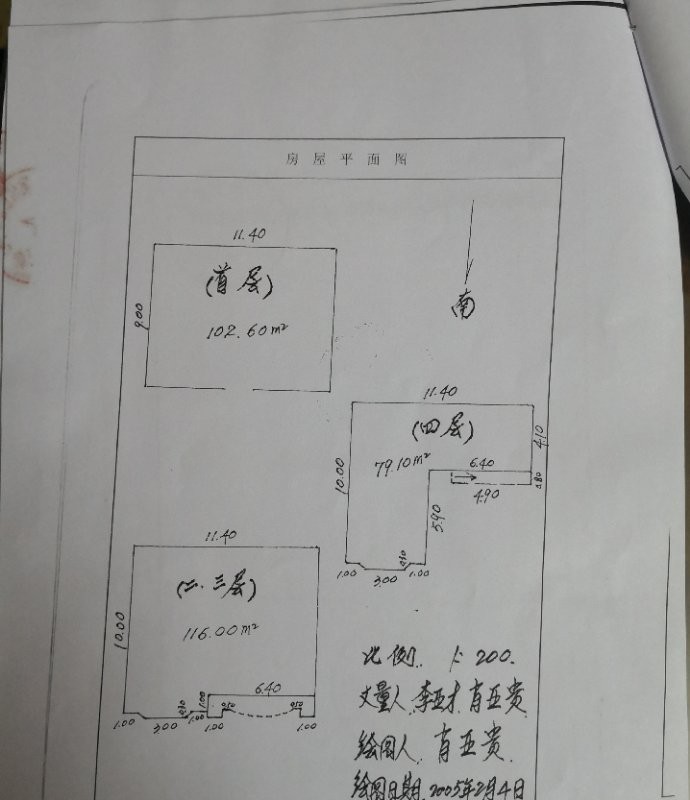 房屋平面图
11.40
(首层)
9.00
102.60m²
南
11.40
(四层)
4.10
10.00
79.10m²
6.40
4.90
5.90
1.00
3.00
1.00
11.40
(二.三层)
10.00
116.00m²
6.40
1.00
1.00
3.00
1.00
1.00
1.00
比例. 1:200.
丈量人.李亚才.肖亚贵
绘图人.肖亚贵.
绘图日期.2005年2月4日